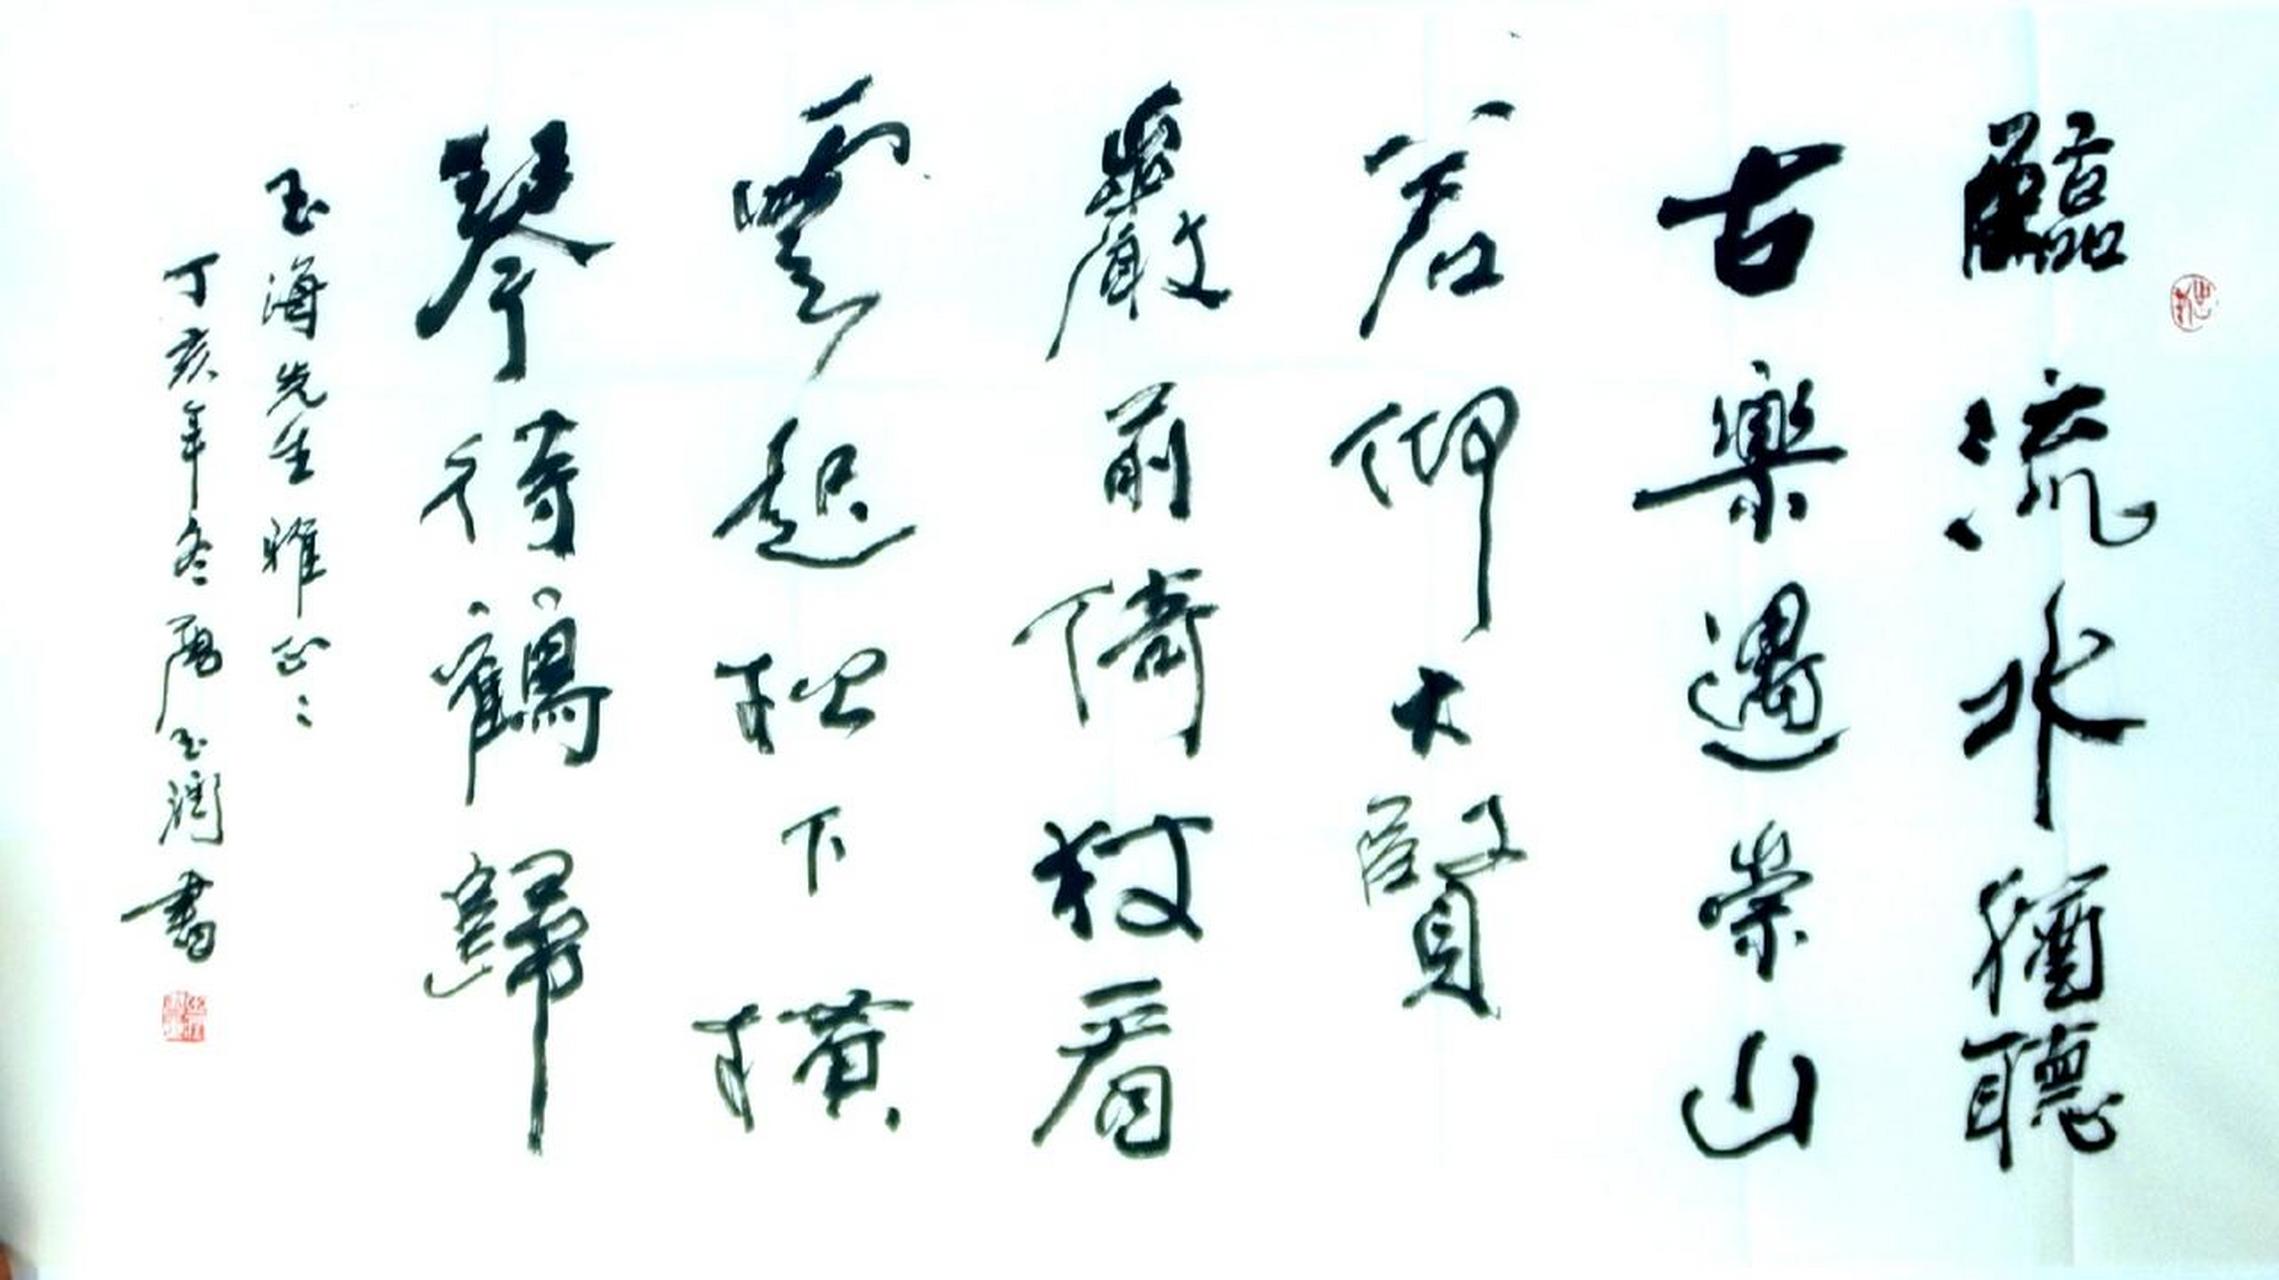 臨流水猶聽
古樂遇崇山
若仰大賢
巖前倚杖看
雲起松下橫
琴待鶴歸
玉海先生雅正
丁亥年冬陽玉衡書